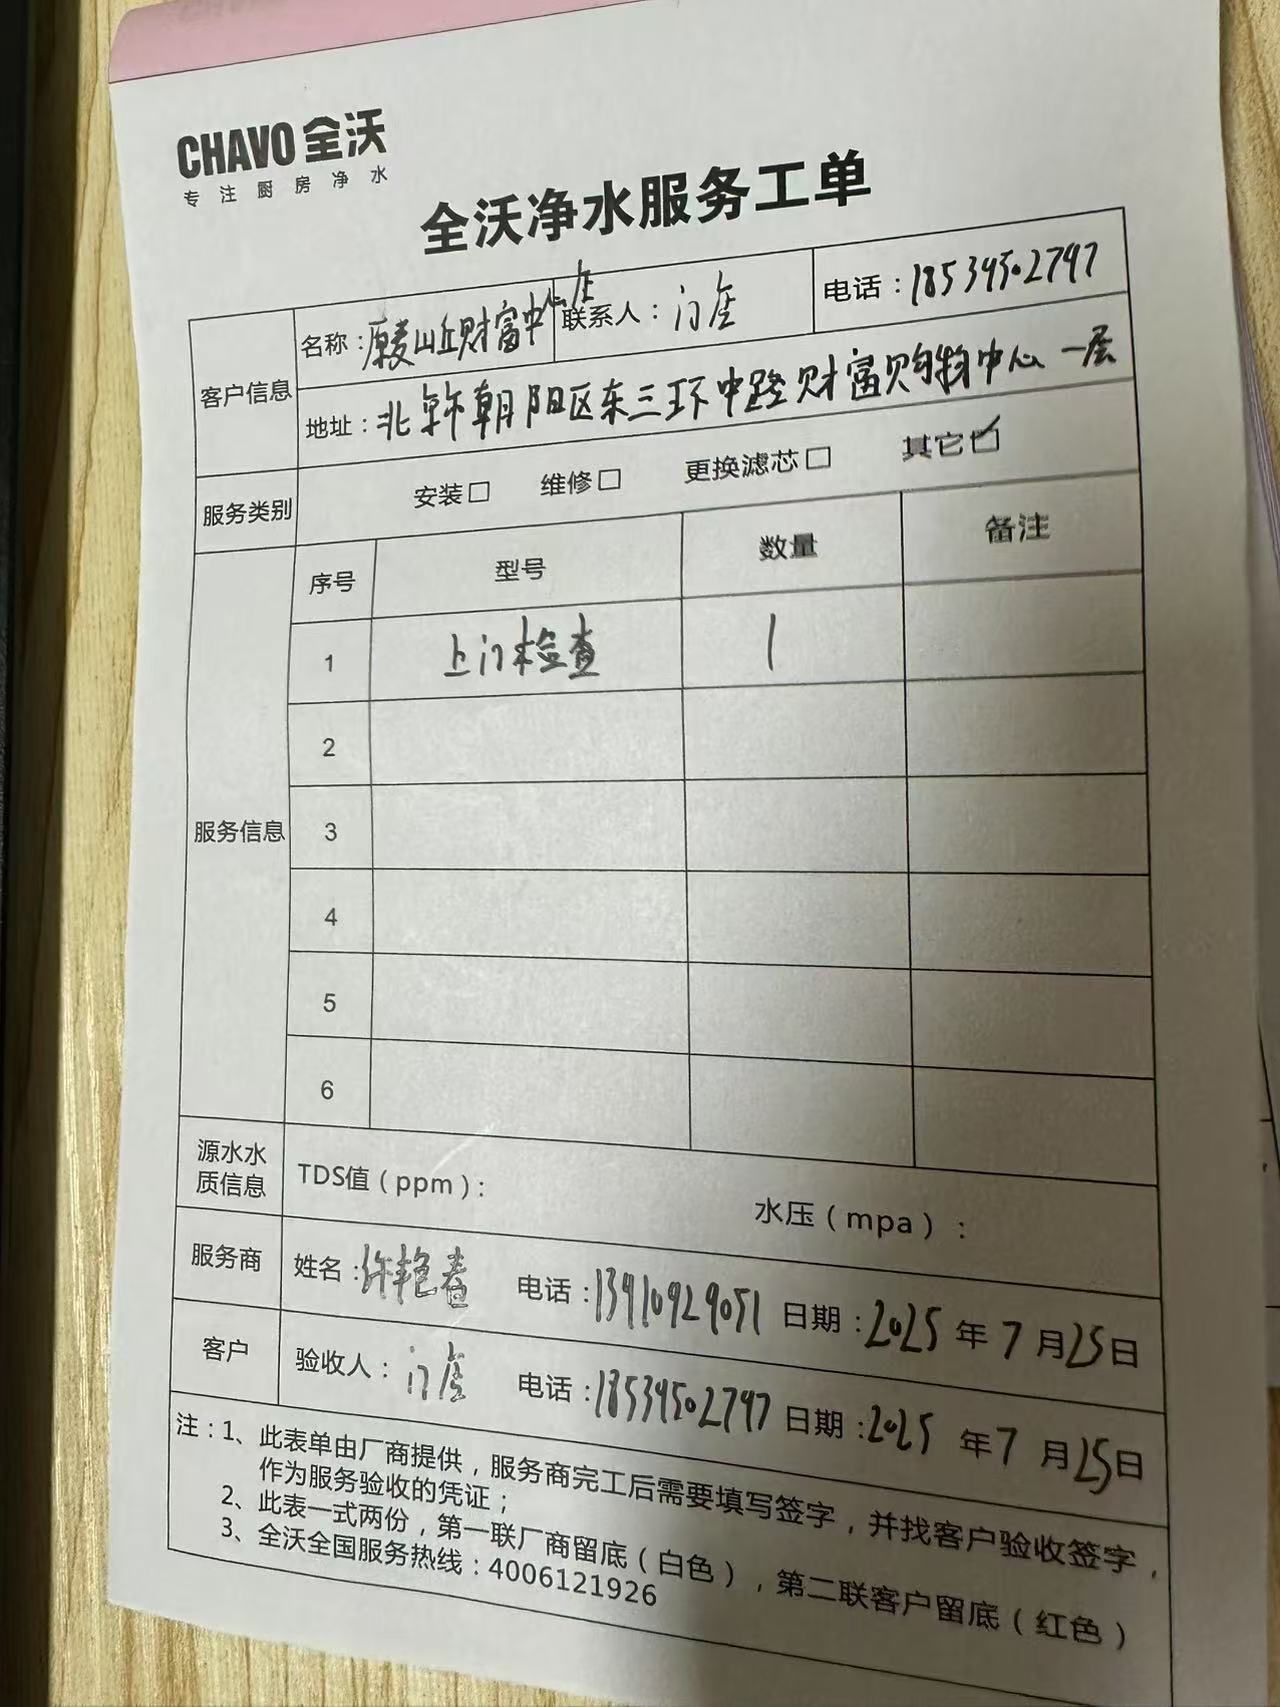 CHAVO 全沃
专注厨房净水
全沃净水服务工单
客户信息
名称：原麦山丘财富中心店 联系人：门店 电话：18534502797
地址：北京市朝阳区东三环中路财富购物中心一层
服务类别 安装□ 维修□ 更换滤芯□ 其它☑
服务信息
序号 型号 数量 备注
1 上门检查 1
2
3
4
5
6
源水水质信息 TDS值（ppm）： 水压（mpa）：
服务商 姓名：许艳春 电话：13910929051 日期：2025年7月25日
客户 验收人：门店 电话：18534502797 日期：2025年7月25日
注：1、此表单由厂商提供，服务商完工后需要填写签字，并找客户验收签字，
作为服务验收的凭证；
2、此表一式两份，第一联厂商留底（白色），第二联客户留底（红色）
3、全沃全国服务热线：4006121926